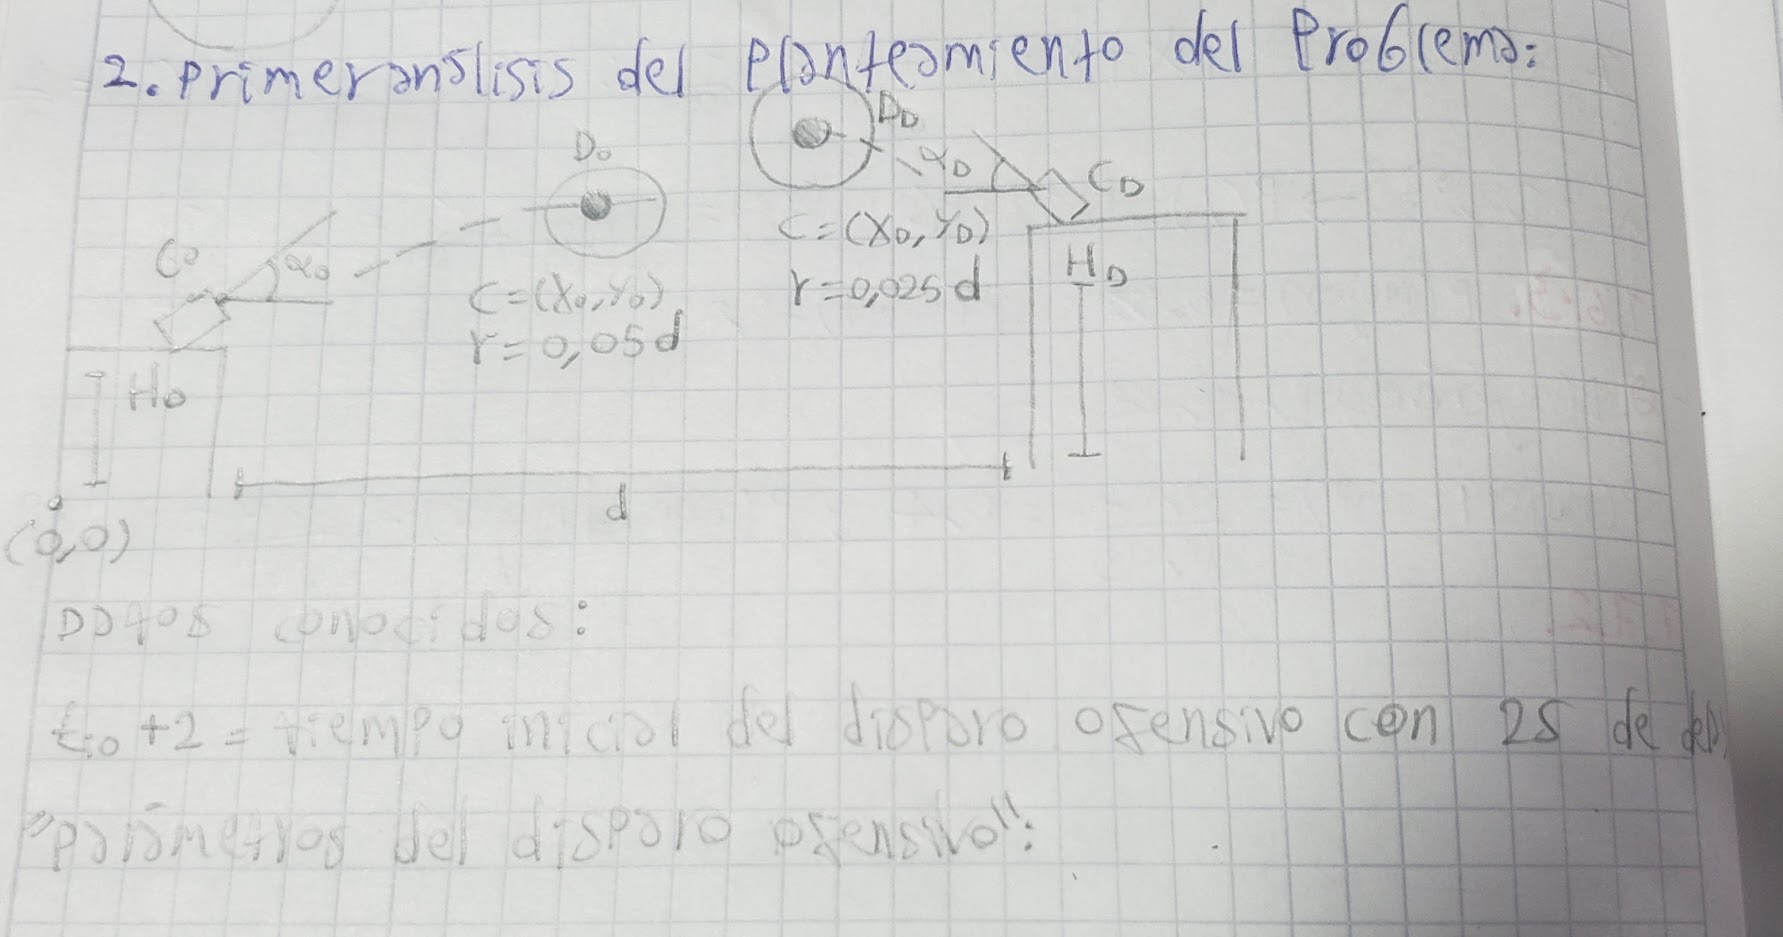 2. Primer análisis del Planteamiento del Problema:
D₀
D_D
C₀
α₀
α_D
C_D
C=(X₀,Y₀)
r=0,05d
C=(X_D,Y_D)
r=0,025d
H₀
H_D
d
(0,0)
Datos conocidos:
t₁₀+2 = tiempo inicial del disparo ofensivo con 2S de
"parámetros del disparo ofensivo":